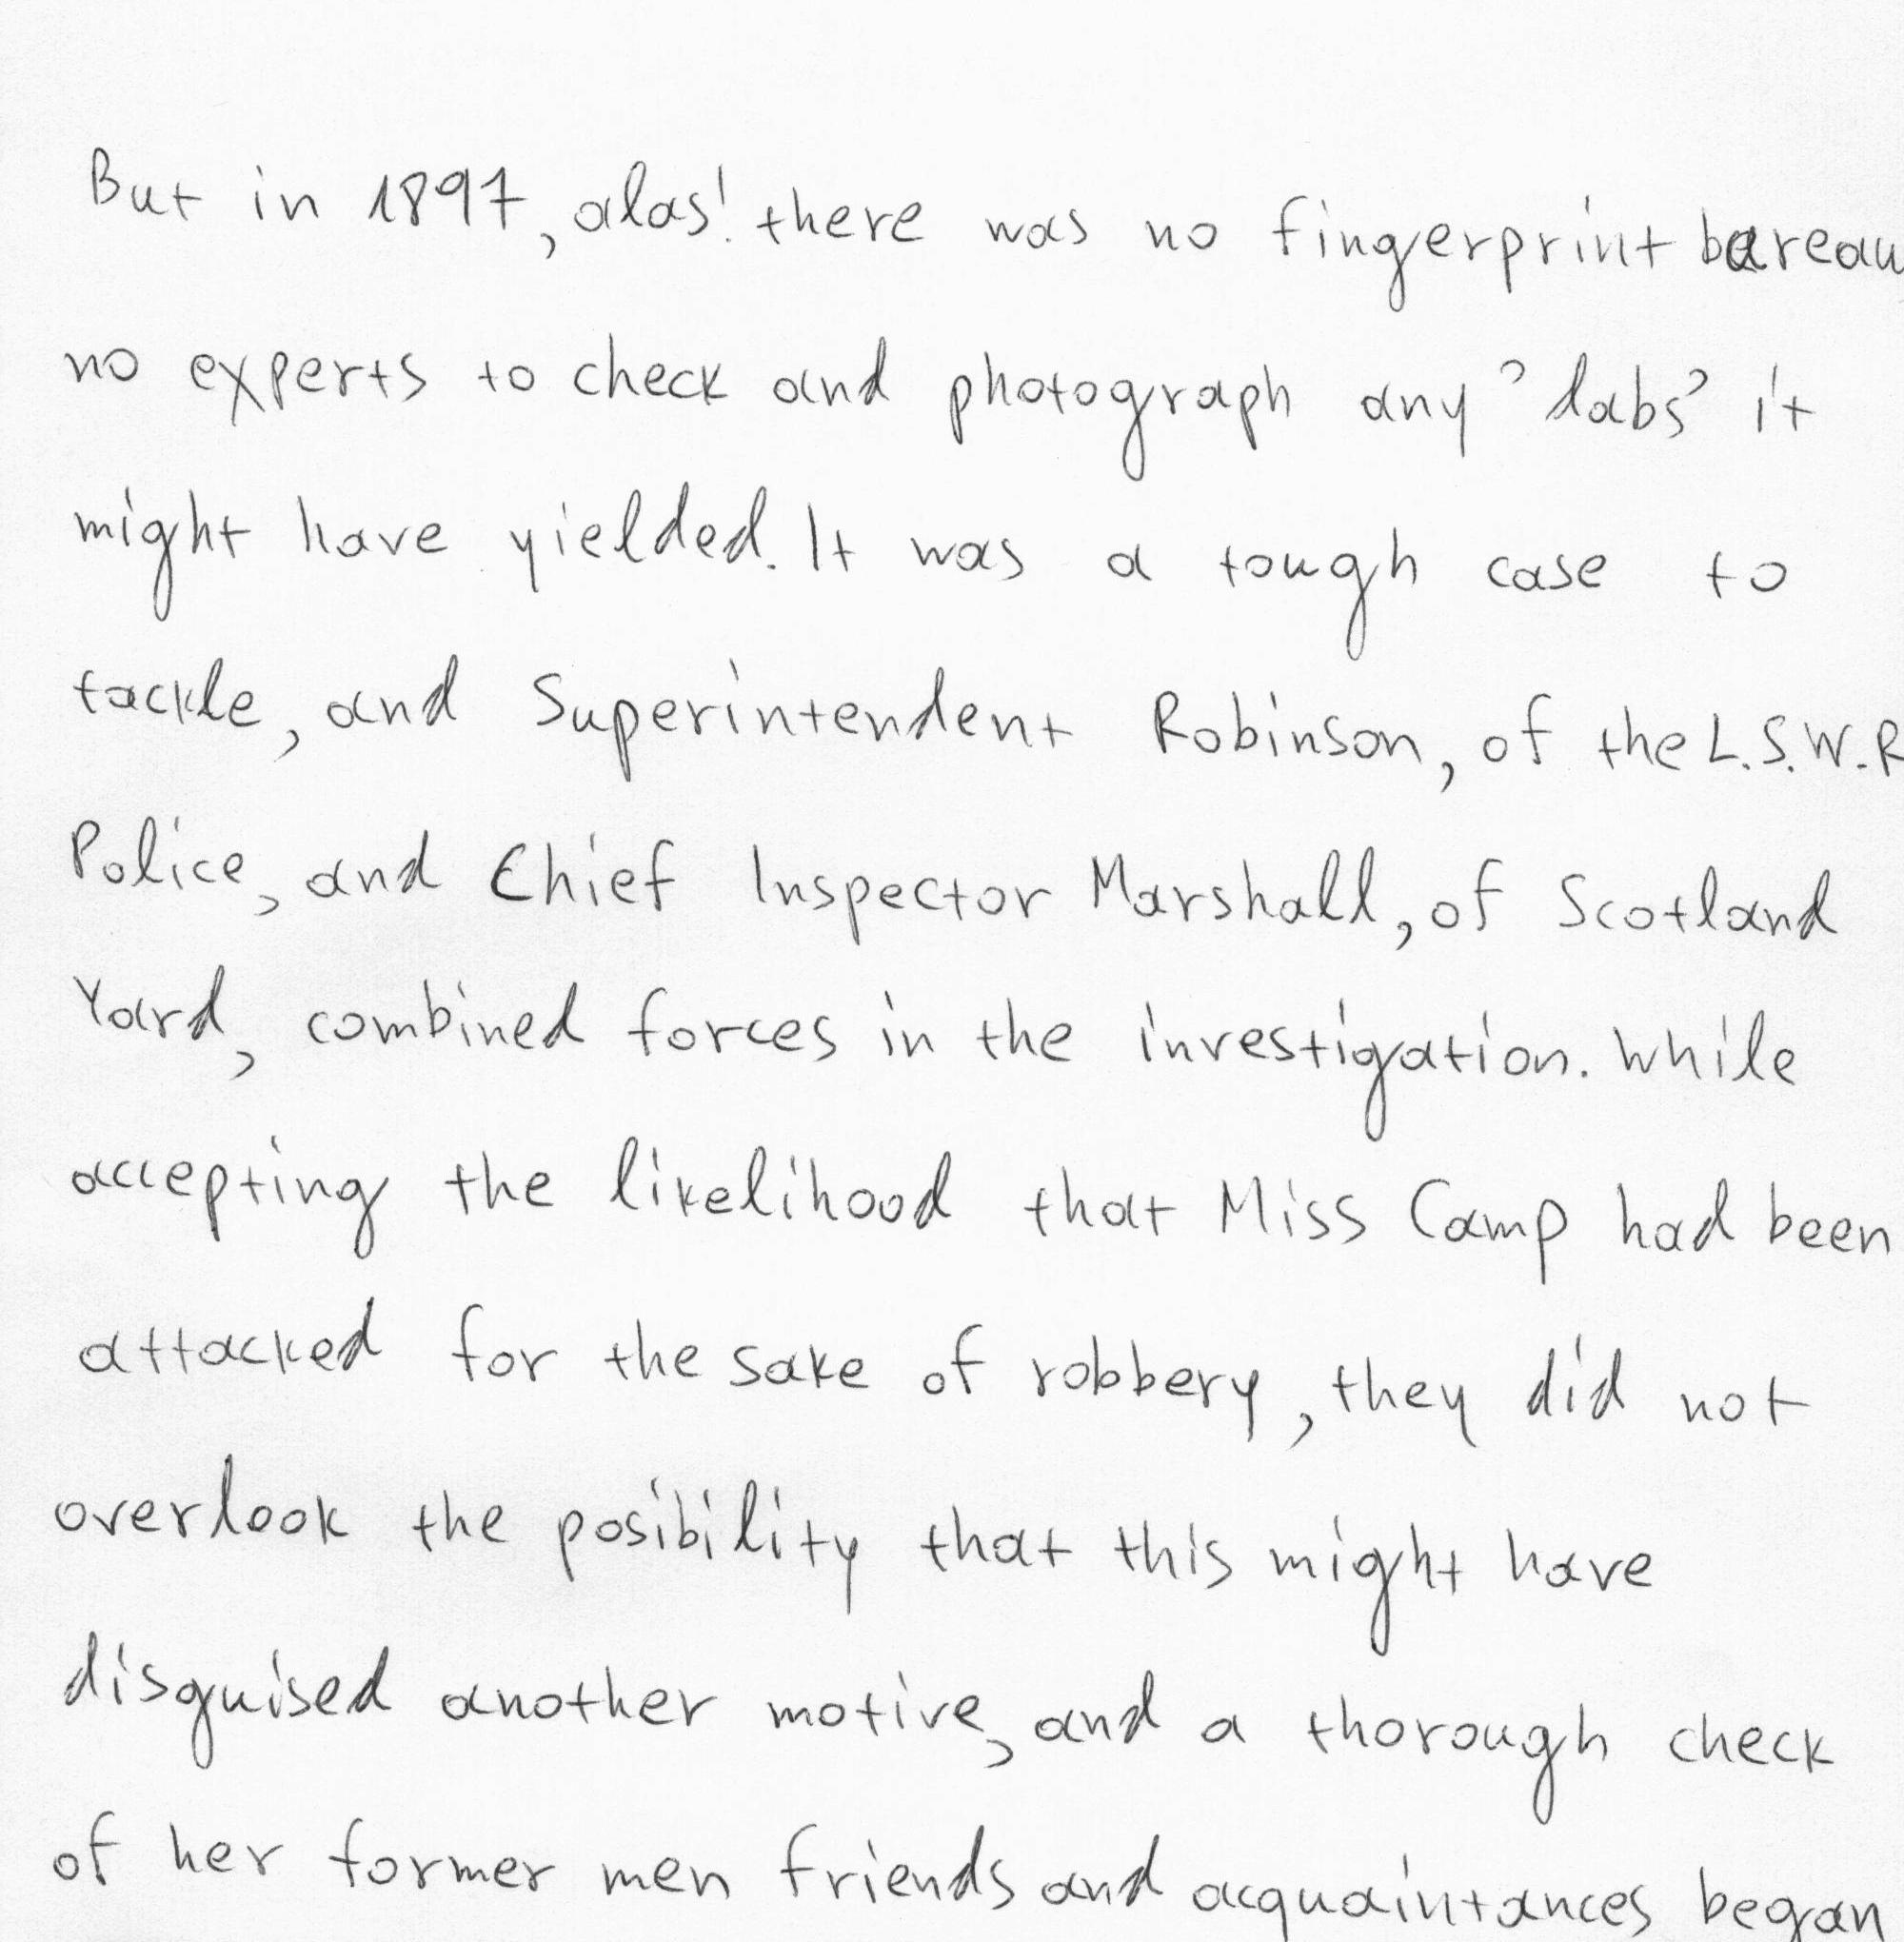 But in 1897, alas! there was no fingerprint bureau
no experts to check and photograph any 'dabs' it
might have yielded. It was a tough case to
tackle, and Superintendent Robinson, of the L.S.W.R
Police, and Chief Inspector Marshall, of Scotland
Yard, combined forces in the investigation. While
accepting the likelihood that Miss Camp had been
attacked for the sake of robbery, they did not
overlook the posibility that this might have
disguised another motive, and a thorough check
of her former men friends and acquaintances began